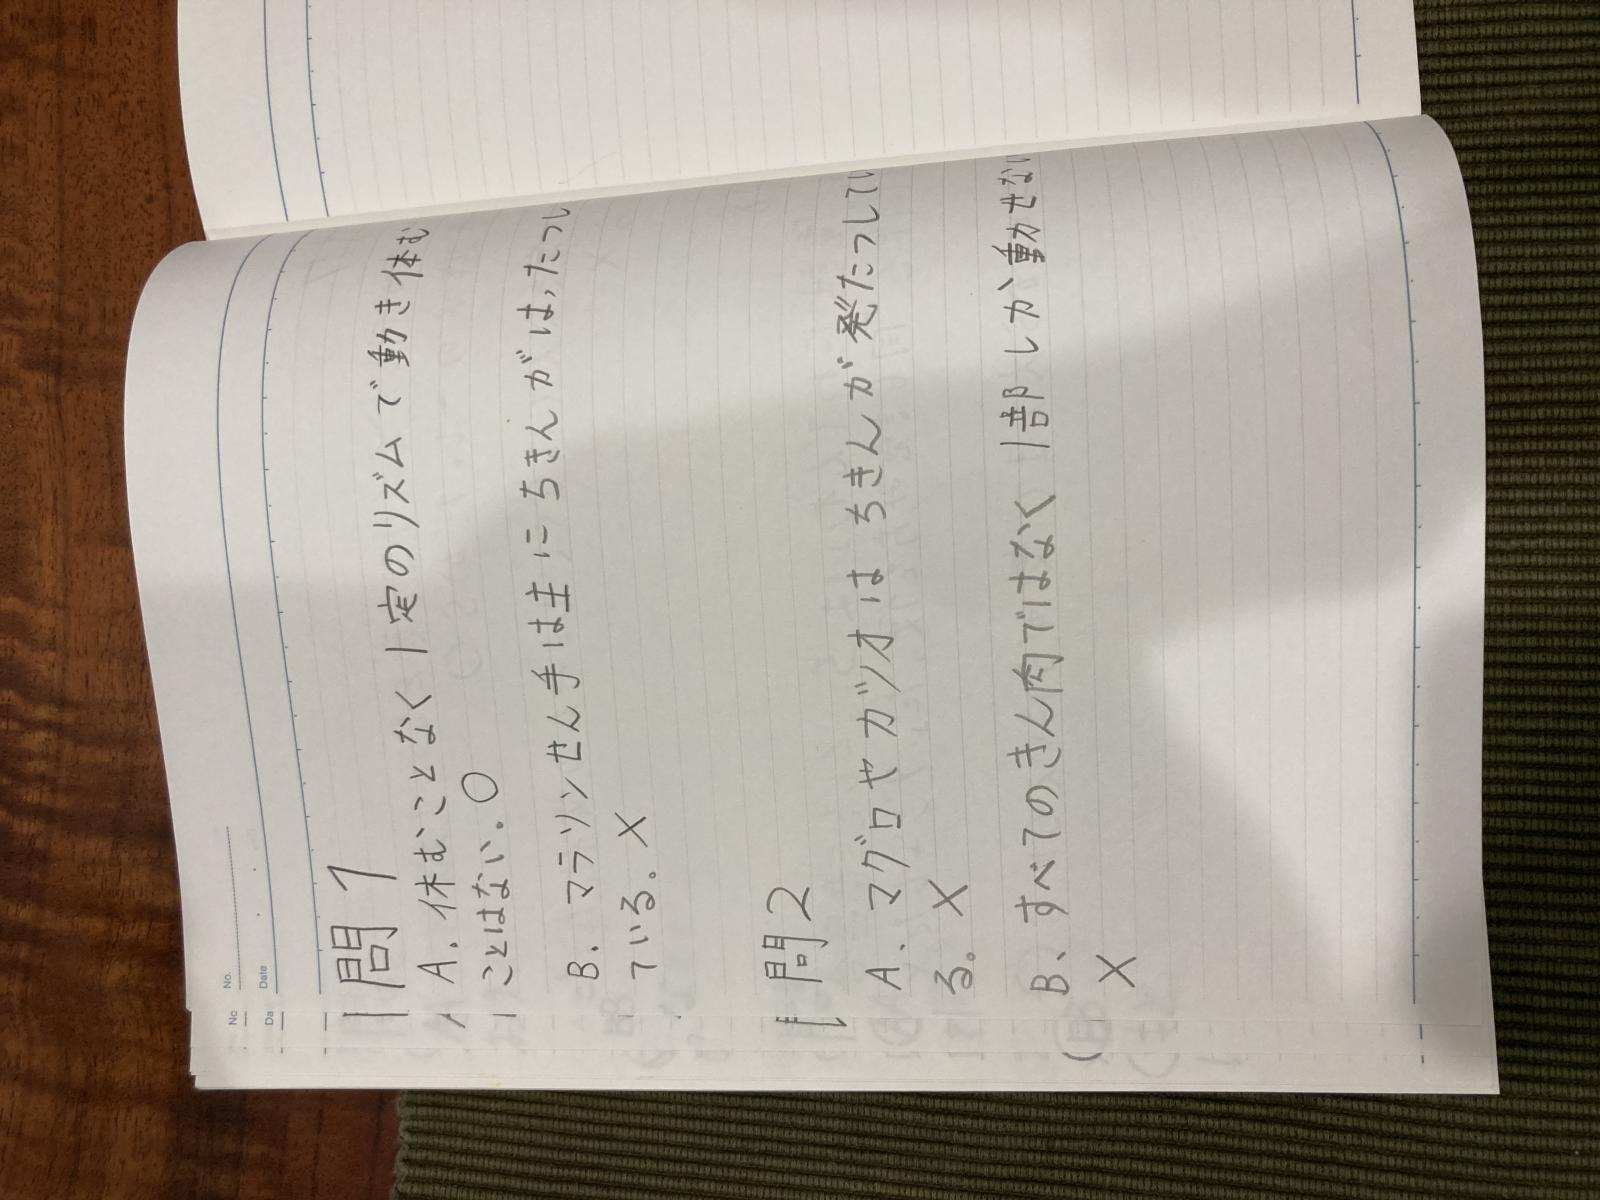 No.
Date
問1
A. 休むことなく1定のリズムで動き休む
ことはない。○
B、マラソンせん手は主にちきんがは,たつし
ている。×
問2
A、マグロやカツオはちきんが発たつしてい
る。×
B、すべてのきん肉ではなく1部しか動せない
×